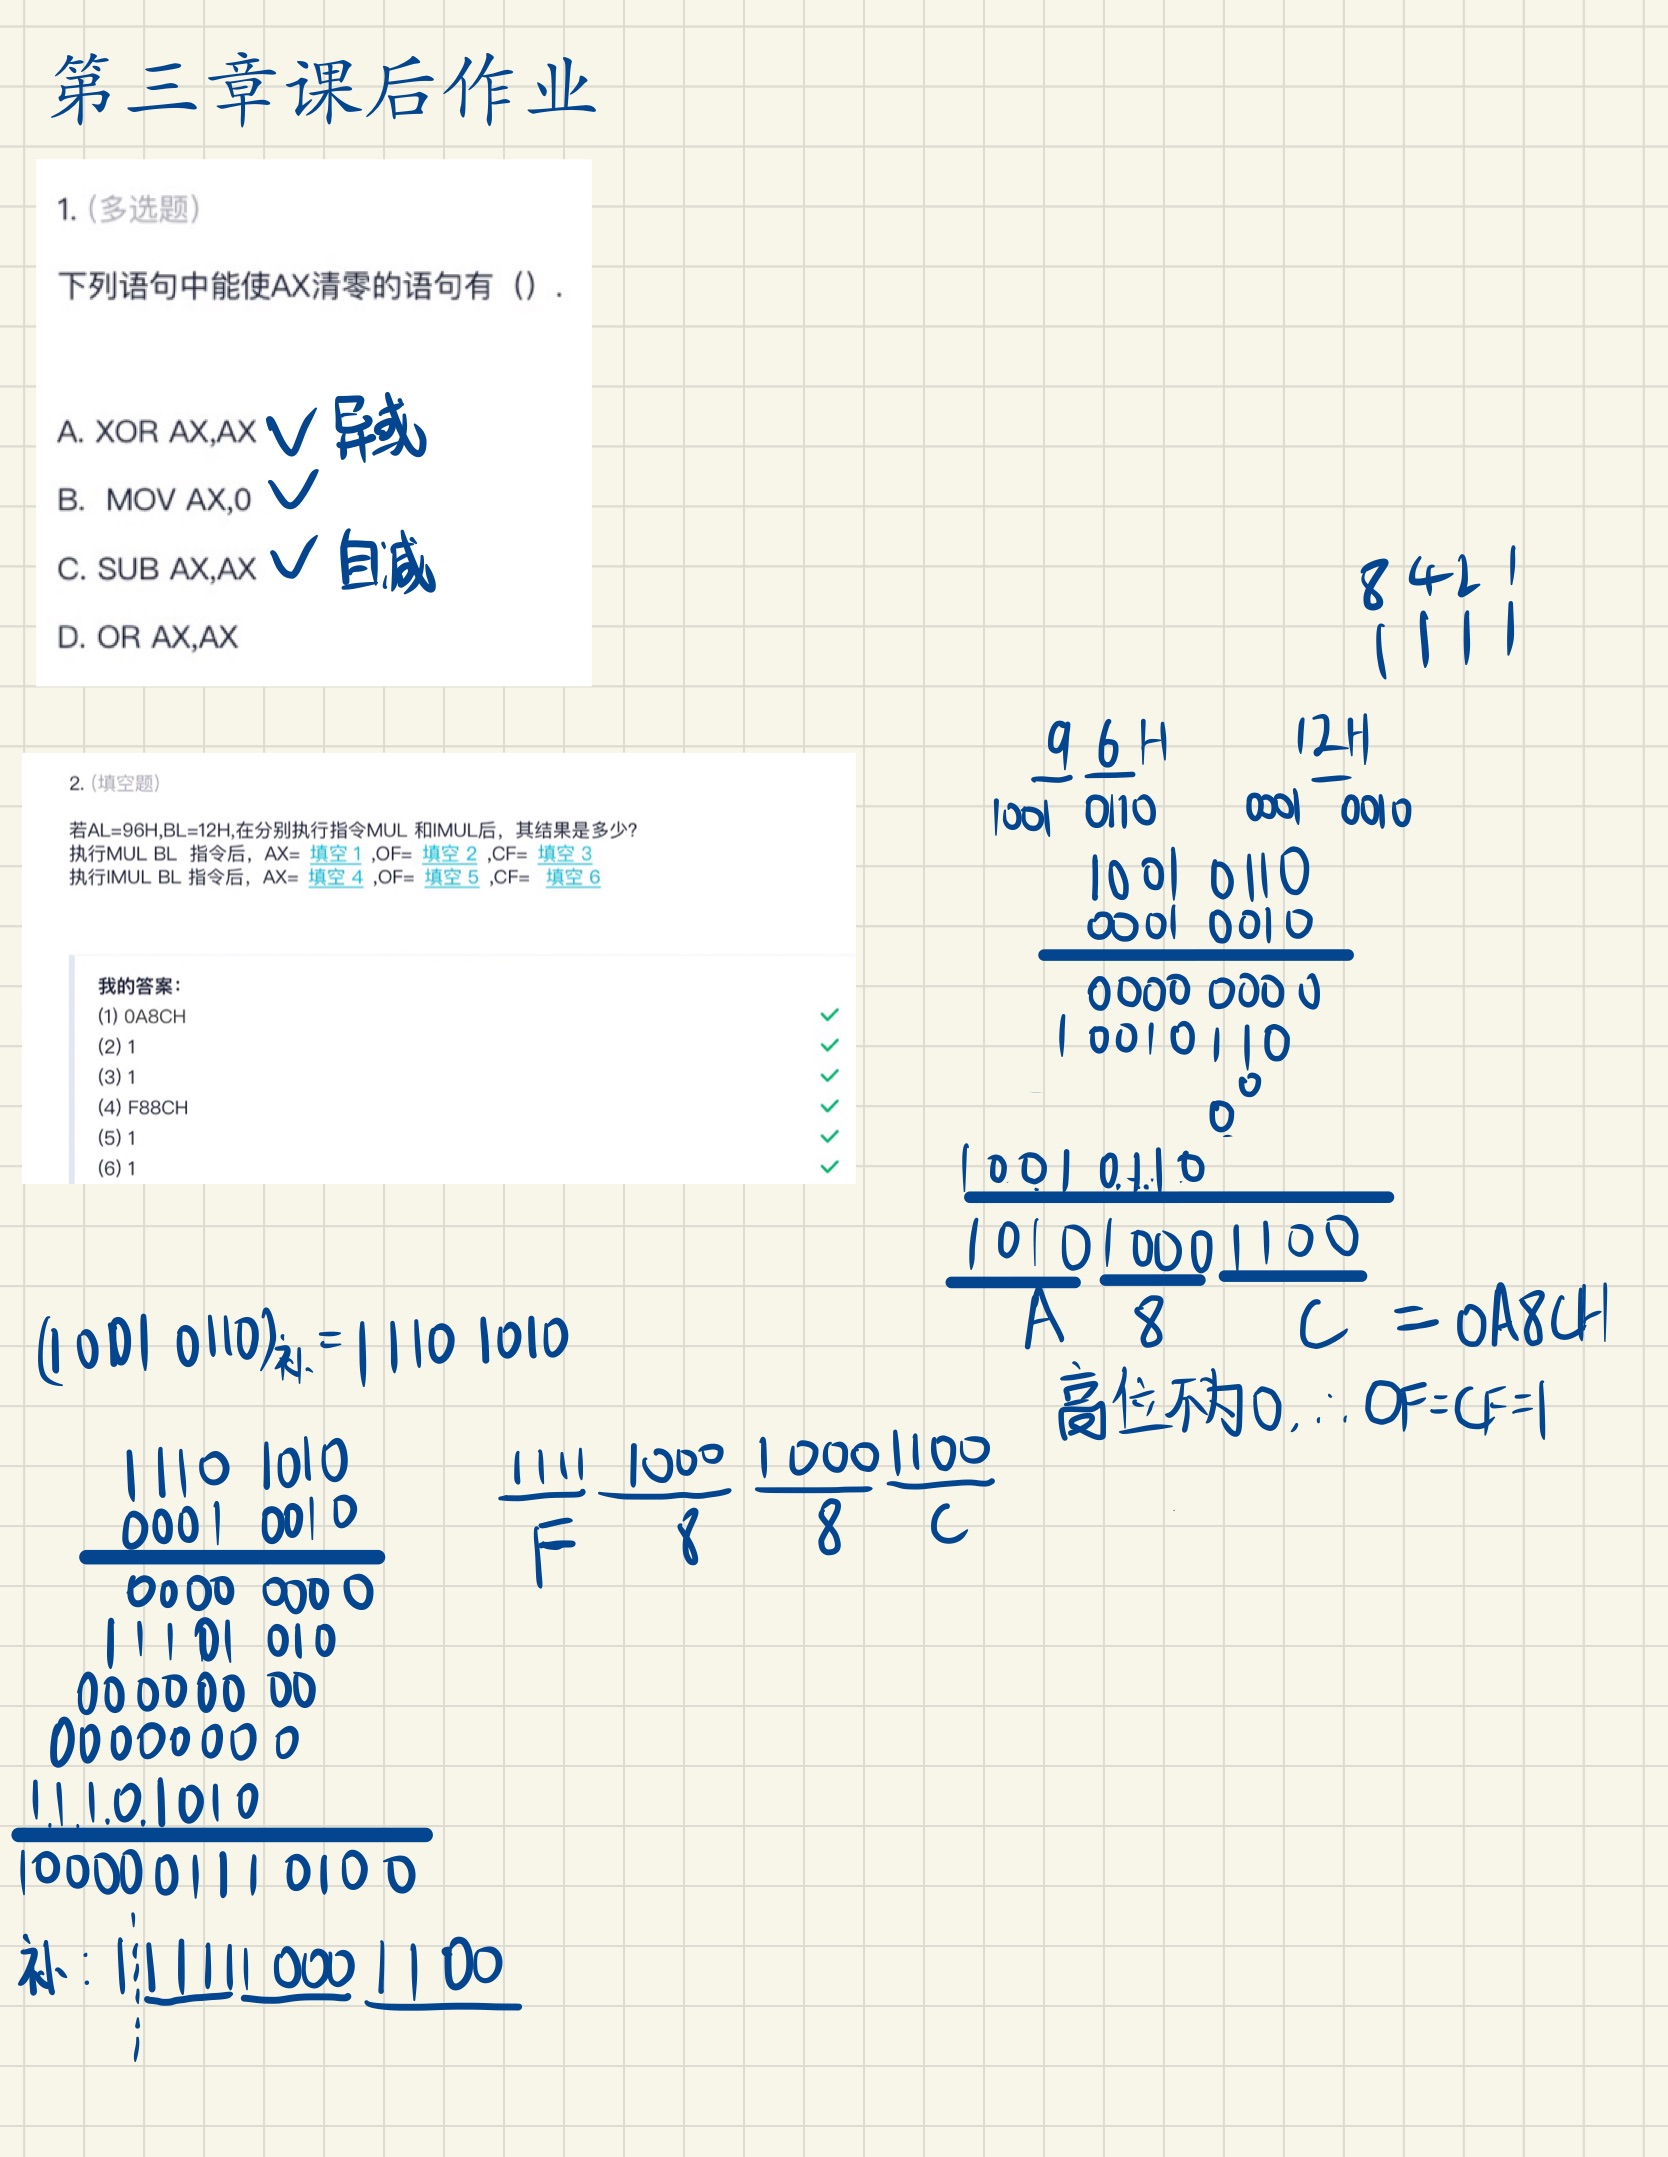 第三章课后作业
1. (多选题)
下列语句中能使AX清零的语句有（）.
A. XOR AX,AX ✓ 异或
B. MOV AX,0 ✓
C. SUB AX,AX ✓ 自减
D. OR AX,AX
8 4 2 1
1 1 1 1
2. (填空题)
若AL=96H,BL=12H,在分别执行指令MUL 和IMUL后，其结果是多少?
执行MUL BL 指令后，AX= 填空 1 ,OF= 填空 2 ,CF= 填空 3
执行IMUL BL 指令后，AX= 填空 4 ,OF= 填空 5 ,CF= 填空 6
我的答案：
(1) 0A8CH
(2) 1
(3) 1
(4) F88CH
(5) 1
(6) 1
96H 12H
1001 0110 0001 0010
1001 0110
0001 0010
0000 0000
10010110
0
0
1001 0110
1010 1000 1100
A 8 C = 0A8CH
高位不为0,∴OF=CF=1
(1001 0110)补=1110 1010
1110 1010
0001 0010
0000 0000
11101 010
000000 00
0000000 0
11101010
1000001110100
补: 1 1111 1000 1100
1111 1000 1000 1100
F 8 8 C